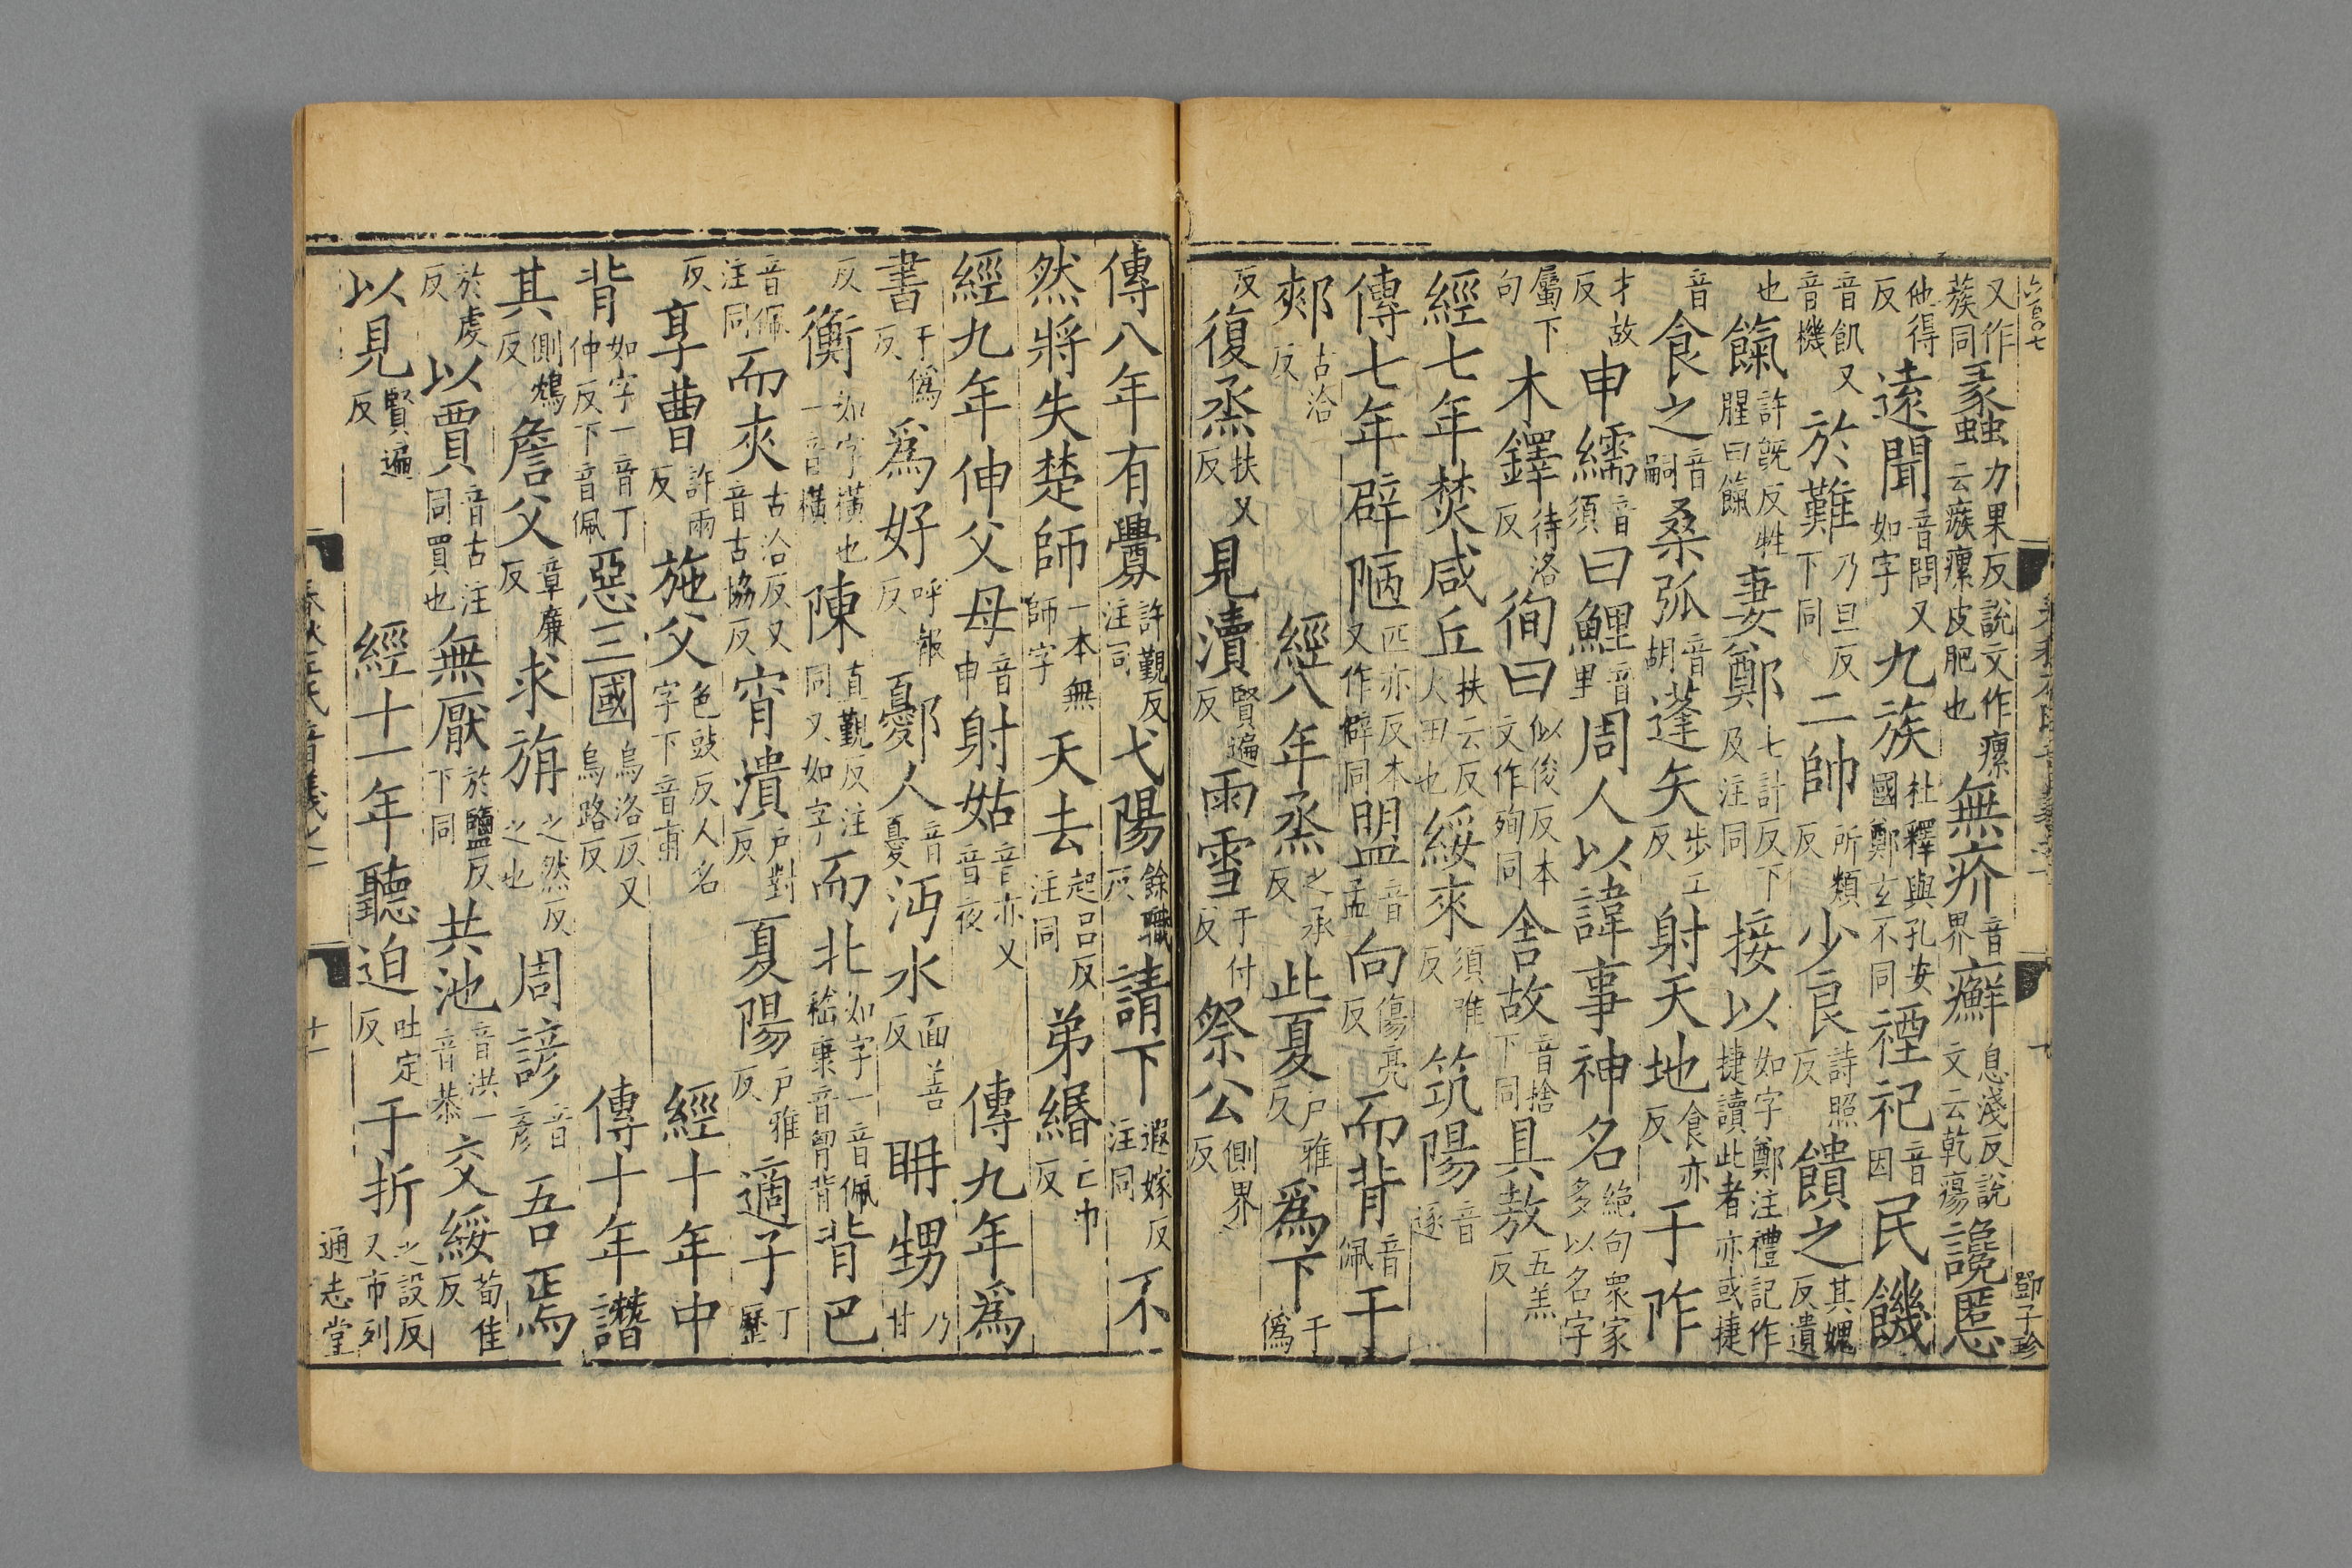 六百〇七　鄧子珍
又作蔟同蠡力果反說文作瘰云瘯瘰皮肥也無疥音界癬息淺反說文云乾瘍讒慝
他得反遠聞音問又如字九族杜釋與孔安國鄭玄不同禋祀音因民饑
音飢又音機於難乃旦反下同二帥所類反少良詩照反饋之其媿反遺
也餼許旣反牲腥曰餼妻鄭七計反下及注同接以如字鄭注禮記作捷讀此者亦或捷
音食之音嗣桑弧音胡蓬矢步工反射天地食亦反于阼
才故反申繻音須曰鯉音里周人以諱事神名絶句衆家多以名字
屬下句木鐸待洛反徇曰似俊反本文作殉同舍故音捨下同具敖五羔反
經七年焚咸丘扶云反火田也綏來須唯反筑陽音逐
傳七年辟陋匹亦反本又作僻同盟音孟向傷亮反而背音佩于
郟古洽反經八年烝之承反此夏户雅反爲下于僞
反復烝扶又反見瀆賢遍反雨雪于付反祭公側界反
傳八年有釁許覲反注同弋陽餘職反請下遐嫁反注同不
然將失楚師一本無師字天去起呂反注同弟緡亡巾反
經九年伸父母音申射姑音亦又音夜傳九年爲
書于僞反爲好呼報反鄾人音憂沔水面善反聃甥乃甘
反衡如字橫也一音橫陳直覲反注同又如字而北如字一音佩嵇康音胷背背巴
音佩注同而夾古洽反又音古協反宵潰户對反夏陽户雅反適子丁歷
反享曹許兩反施父色豉反人名字下音甫經十年中
背如字一音丁仲反下音佩惡三國烏洛反又烏路反傳十年譖
其側鴆反詹父章廉反求旃之然反之也周諺音彥吾焉
於虔反以賈音古注同買也無厭於鹽反下同共池音洪一音恭交綏荀隹反
以見賢遍反經十一年聽迫吐定反于折之設反又市列
通志堂
春秋左氏音義之一　十一